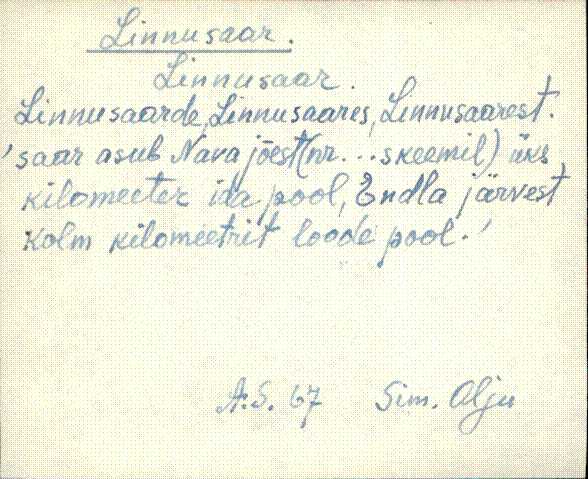 Linnusaar.
Linnusaar.
Linnusaarde, Linnusaares, Linnusaarest.
'saar asub Nava jõest (nr. ... skeemil) üks
kilomeeter ida pool, Endla järvest
kolm kilomeetrit loode pool.'
A.S. 67 Sim. Alju